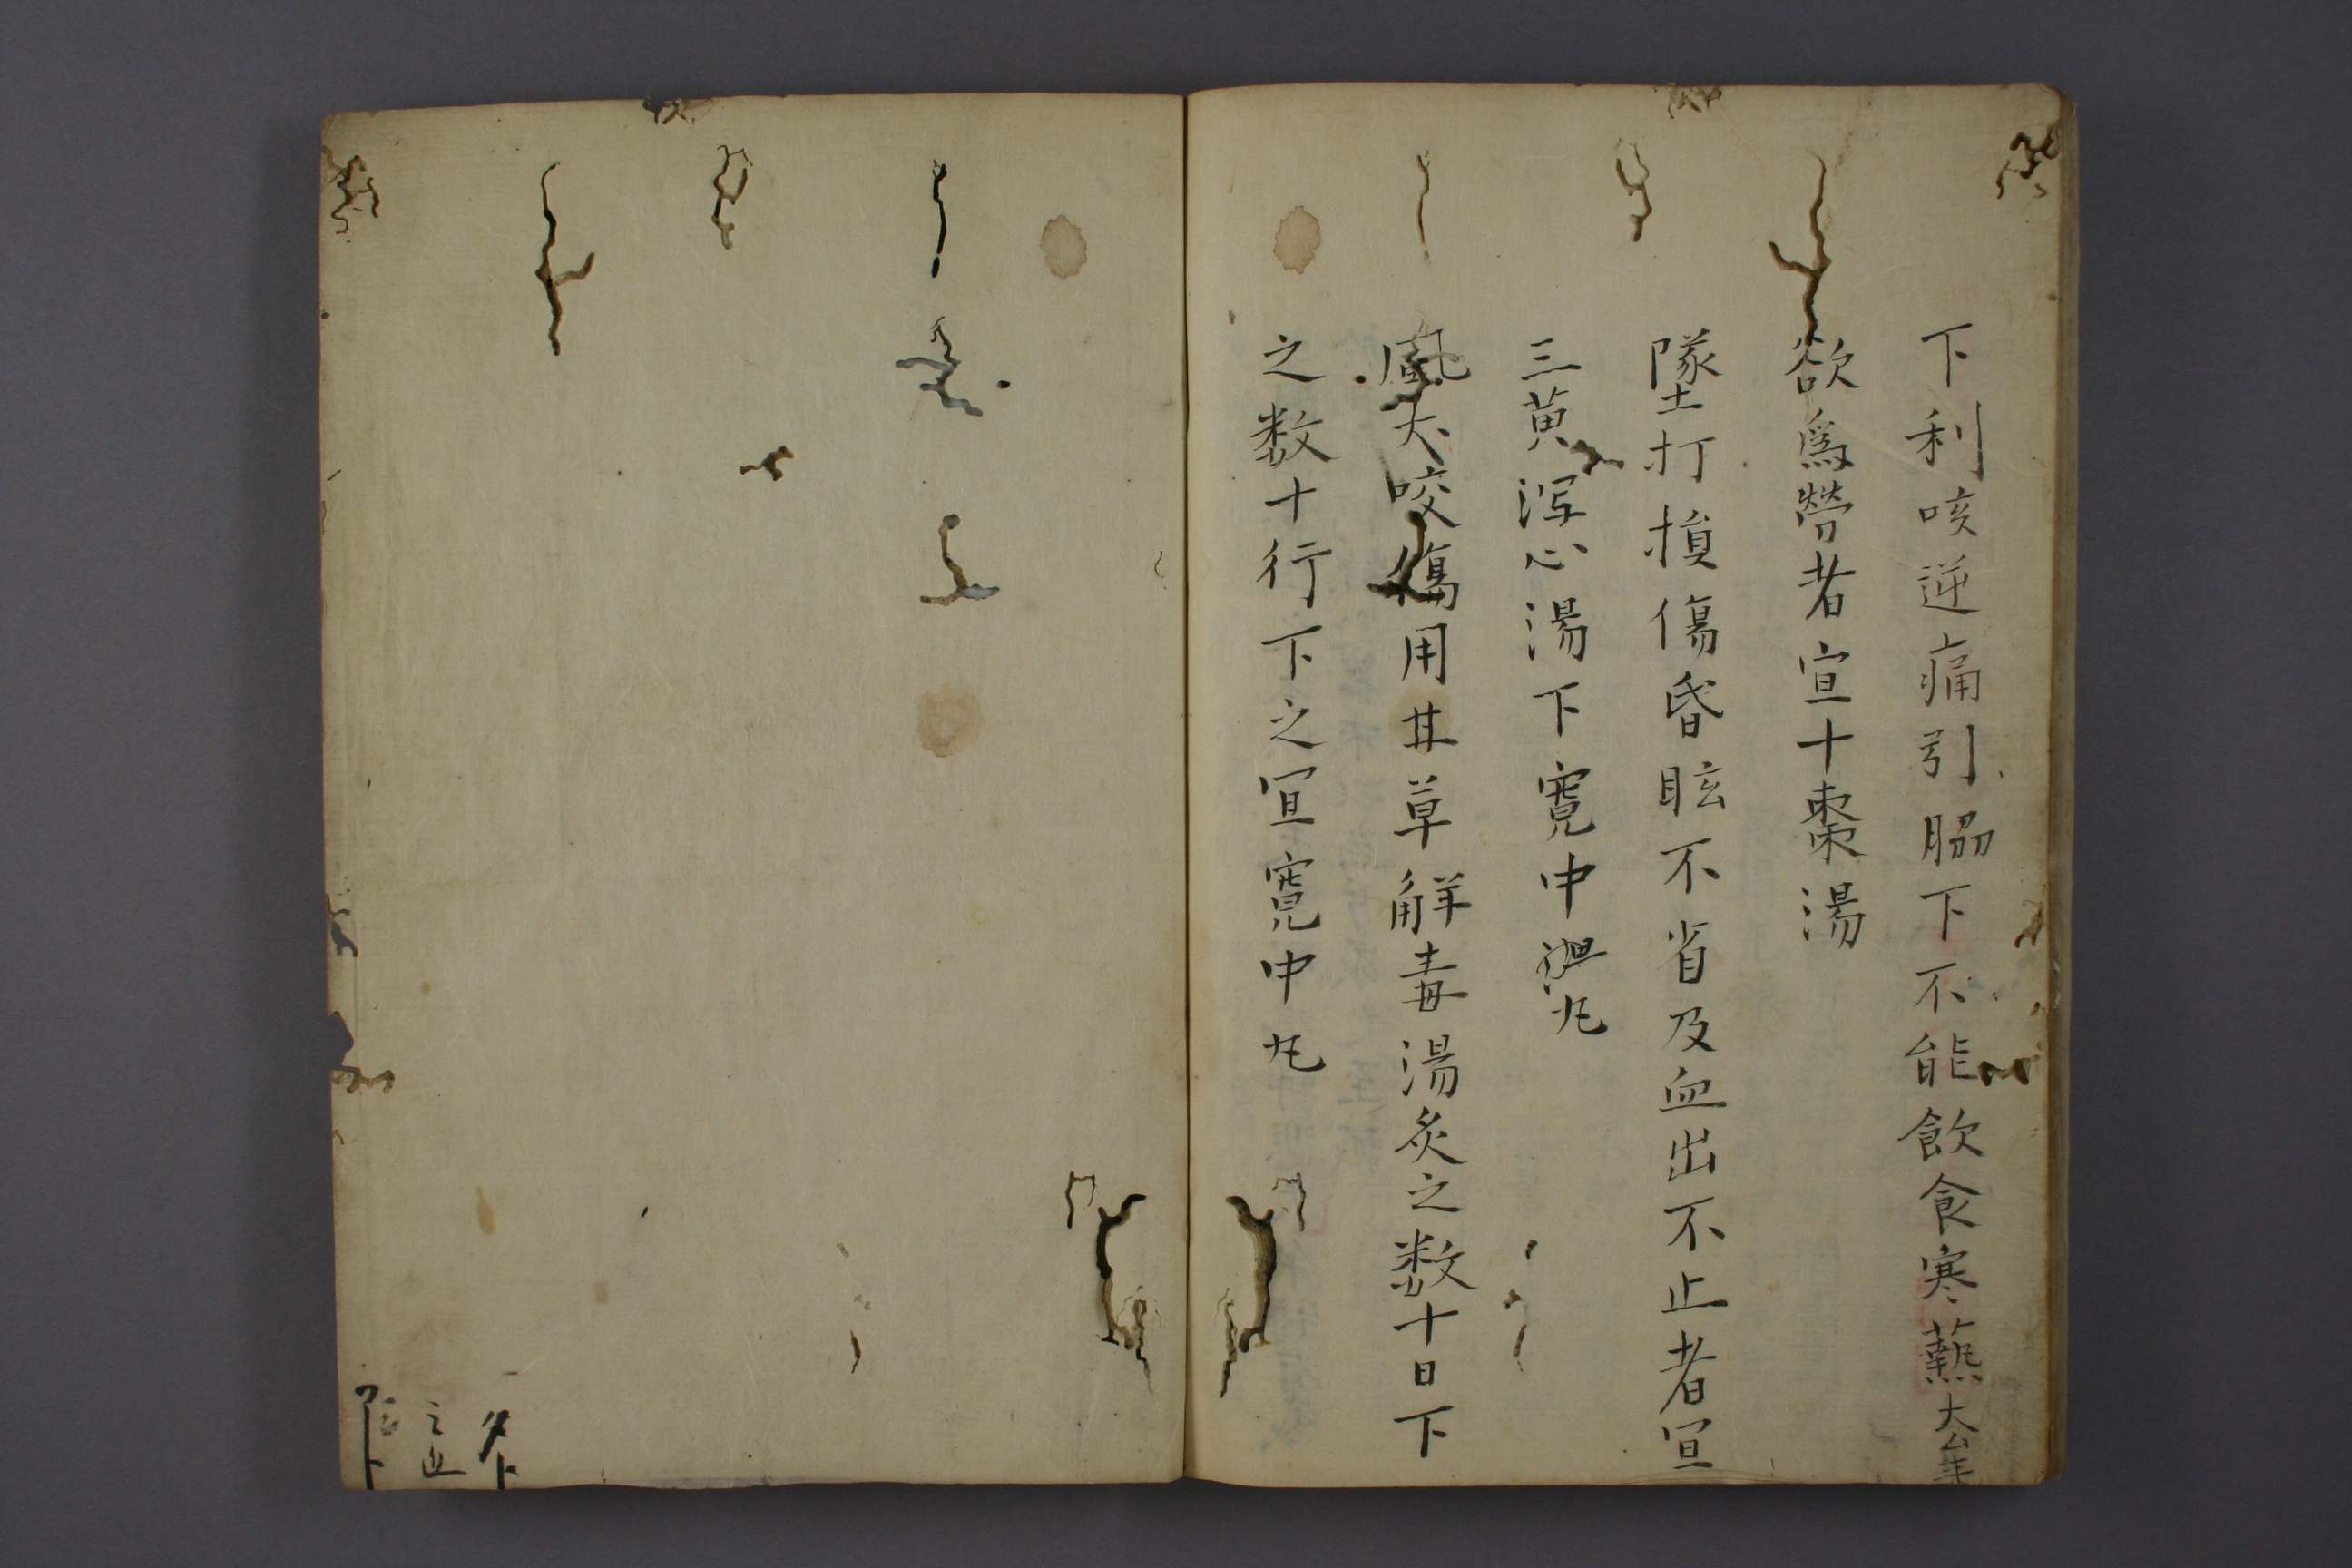 下利咳逆痛引脇下不能飲食寒熱大
欲爲勞者宣十棗湯
墜打損傷昏眩不省及血出不止者宣
三黄泻心湯下寛中丸
風犬咬傷用甘草解毒湯灸之数十日下
之数十行下之宣寛中丸